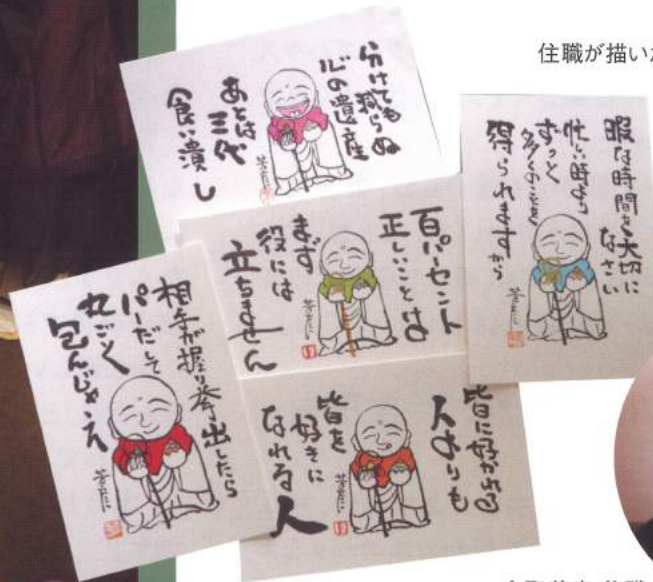 住職が描いた
分けても減らぬ
心の遺産
あとは
三代
食い潰し
暇な時間を大切に
なさい
忙しい時より
ずっと
多くのことを
得られますから
百パーセント
正しいことは
まず
役には
立ちません
相手が握り拳出したら
パーだして
丸ごと
包んじゃえ
皆に好かれる
人よりも
皆を
好きに
なれる
人